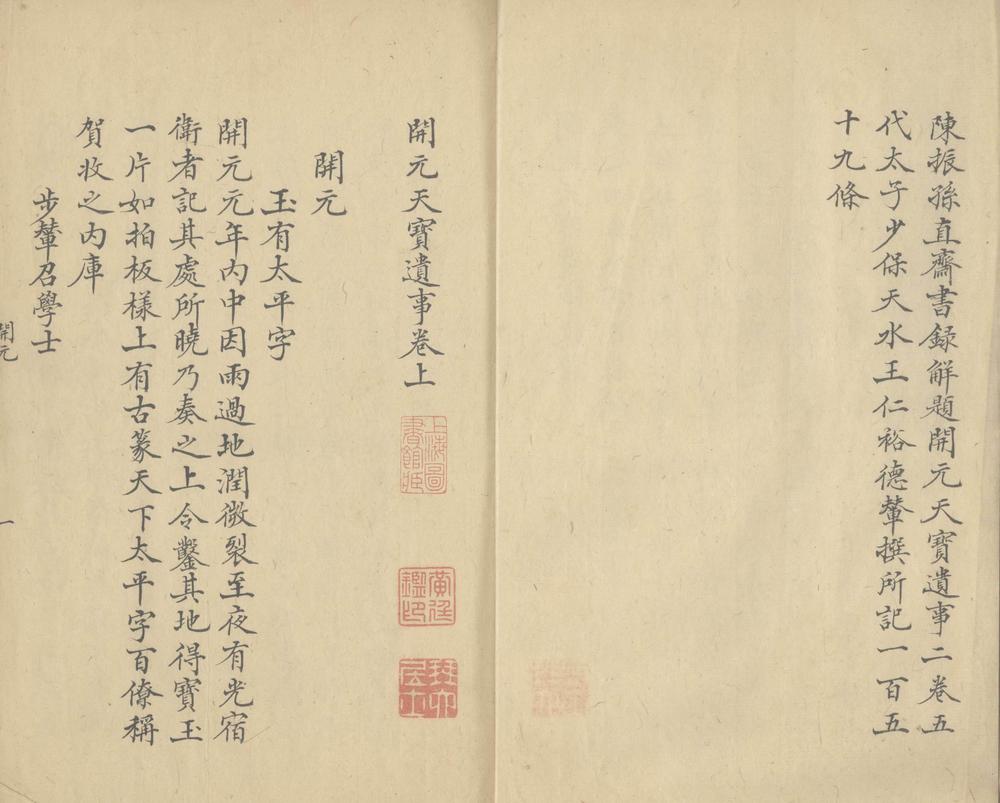 陳振孫直齋書録解題開元天寶遺事二卷五
代太子少保天水王仁裕德輦撰所記一百五
十九條
開元天寶遺事卷上
上海圖書館藏
開元
玉有太平字
開元元年内中因雨過地潤微裂至夜有光宿
衛者記其處所曉乃奏之上令鑿其地得寶玉
一片如拍板樣上有古篆天下太平字百僚稱
賀收之内庫
步輦召學士
開元
一